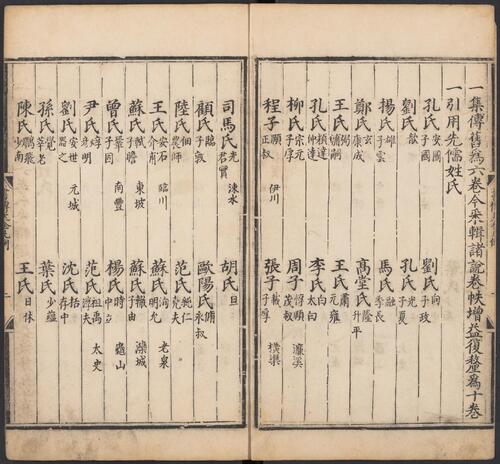 一集傳舊爲六卷今采輯諸說卷帙增益復釐爲十卷
一引用先儒姓氏
孔氏安國子國 劉氏向子政
劉氏歆 孔氏光子夏
揚氏雄子雲 馬氏融季長
鄭氏玄康成 高堂氏隆升平
王氏弼輔嗣 王氏肅元雍
孔氏穎達仲達 李氏白太白
柳氏宗元子厚 周子惇頤茂叔 濂溪
程子頤正叔 伊川 張子載子厚 橫渠
司馬氏光君實 涑水 胡氏旦
顧氏臨子敦 歐陽氏脩永叔
陸氏佃農師 范氏純仁堯夫
王氏安石介甫 臨川 蘇氏洵明允 老泉
蘇氏軾子瞻 東坡 蘇氏轍子由 灤城
曾氏鞏子固 南豐 楊氏時中立 龜山
尹氏焞彥明 范氏祖禹淳夫 太史
劉氏安世器之 元城 沈氏括存中
孫氏覺莘老 葉氏少蘊
陳氏鵬飛少南 王氏日休